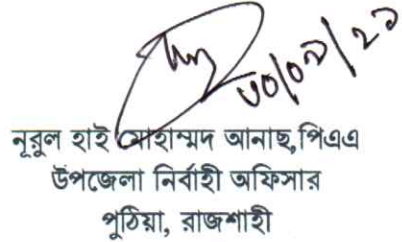 ৩০/০৯/২১
নূরুল হাই মোহাম্মদ আনাছ,পিএএ
উপজেলা নির্বাহী অফিসার
পুঠিয়া, রাজশাহী